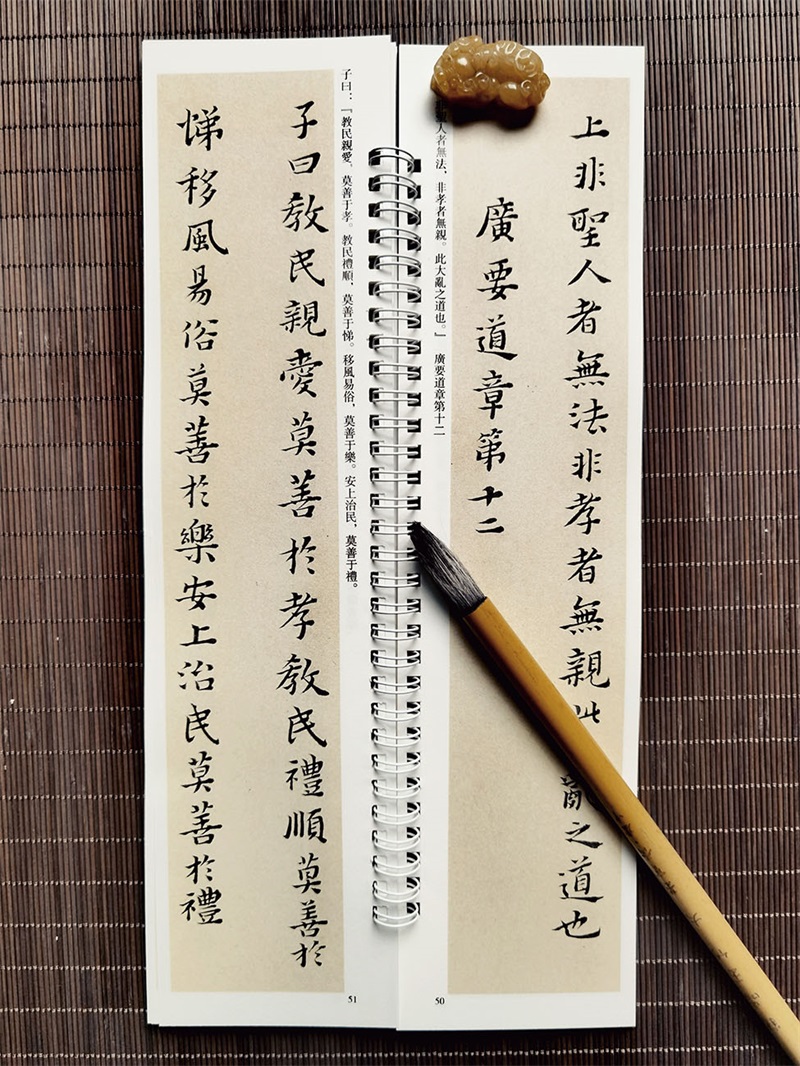 上非聖人者無法非孝者無親此亂之道也
廣要道章第十二
人者無法、非孝者無親。此大亂之道也。」 廣要道章第十二
50
子曰：「教民親愛，莫善于孝。教民禮順，莫善于悌。移風易俗，莫善于樂。安上治民，莫善于禮。
子曰教民親愛莫善於孝教民禮順莫善於
悌移風易俗莫善於樂安上治民莫善於禮
51